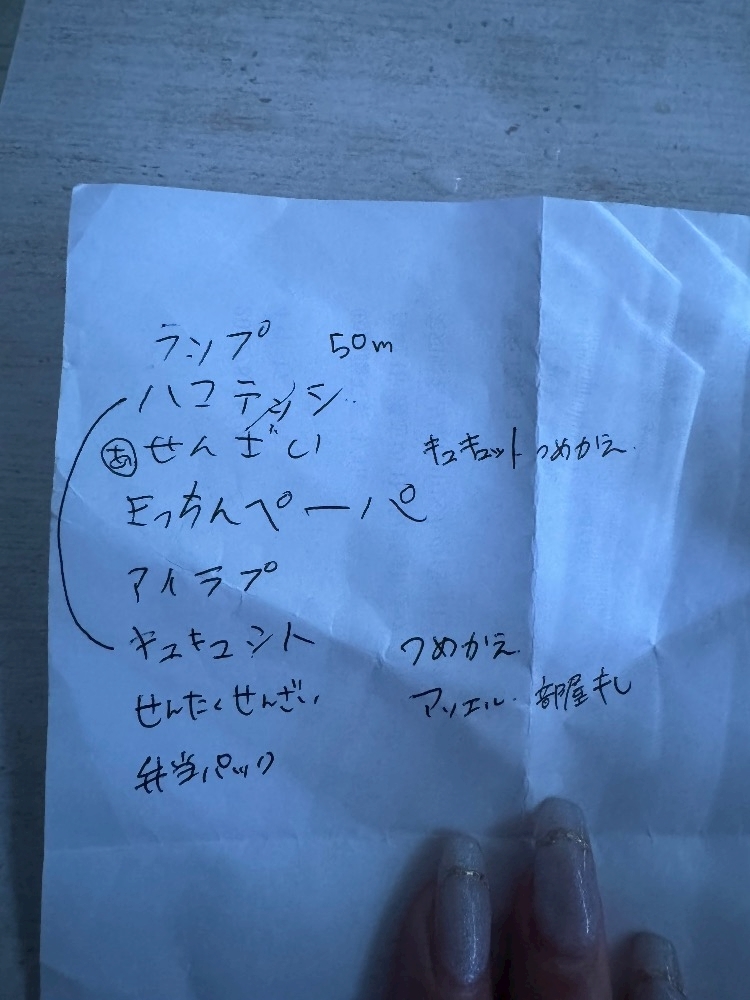 ランプ 50m
ハコティッシ
あ せんざい キュキュット つめかえ
キっちんペーパ
アイラプ
キュキュント つめかえ
せんたくせんざい アリエル 部屋干し
弁当パック